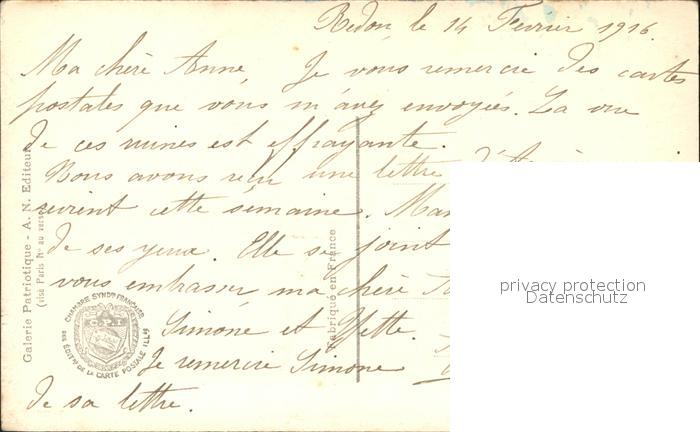 Redon, le 14 Fevrier 1916.
Ma chère Anne, Je vous remercie des cartes
postales que vous m'avez envoyées. La vue
de ces ruines est effrayante.
Nous avons reçu une lettre
cette semaine. 
de ses yeux. Elle se joint
vous embrasser ma chère
Simone et Yvette.
Je remercie Simone
de sa lettre.
Galerie Patriotique - A. N. Editeur
(visa Paris No au verso)
Fabriqué en France
CHAMBRE SYNDle FRANÇAISE
DES EDITrs DE LA CARTE POSTALE ILLée
C.P.I.
privacy protection
Datenschutz